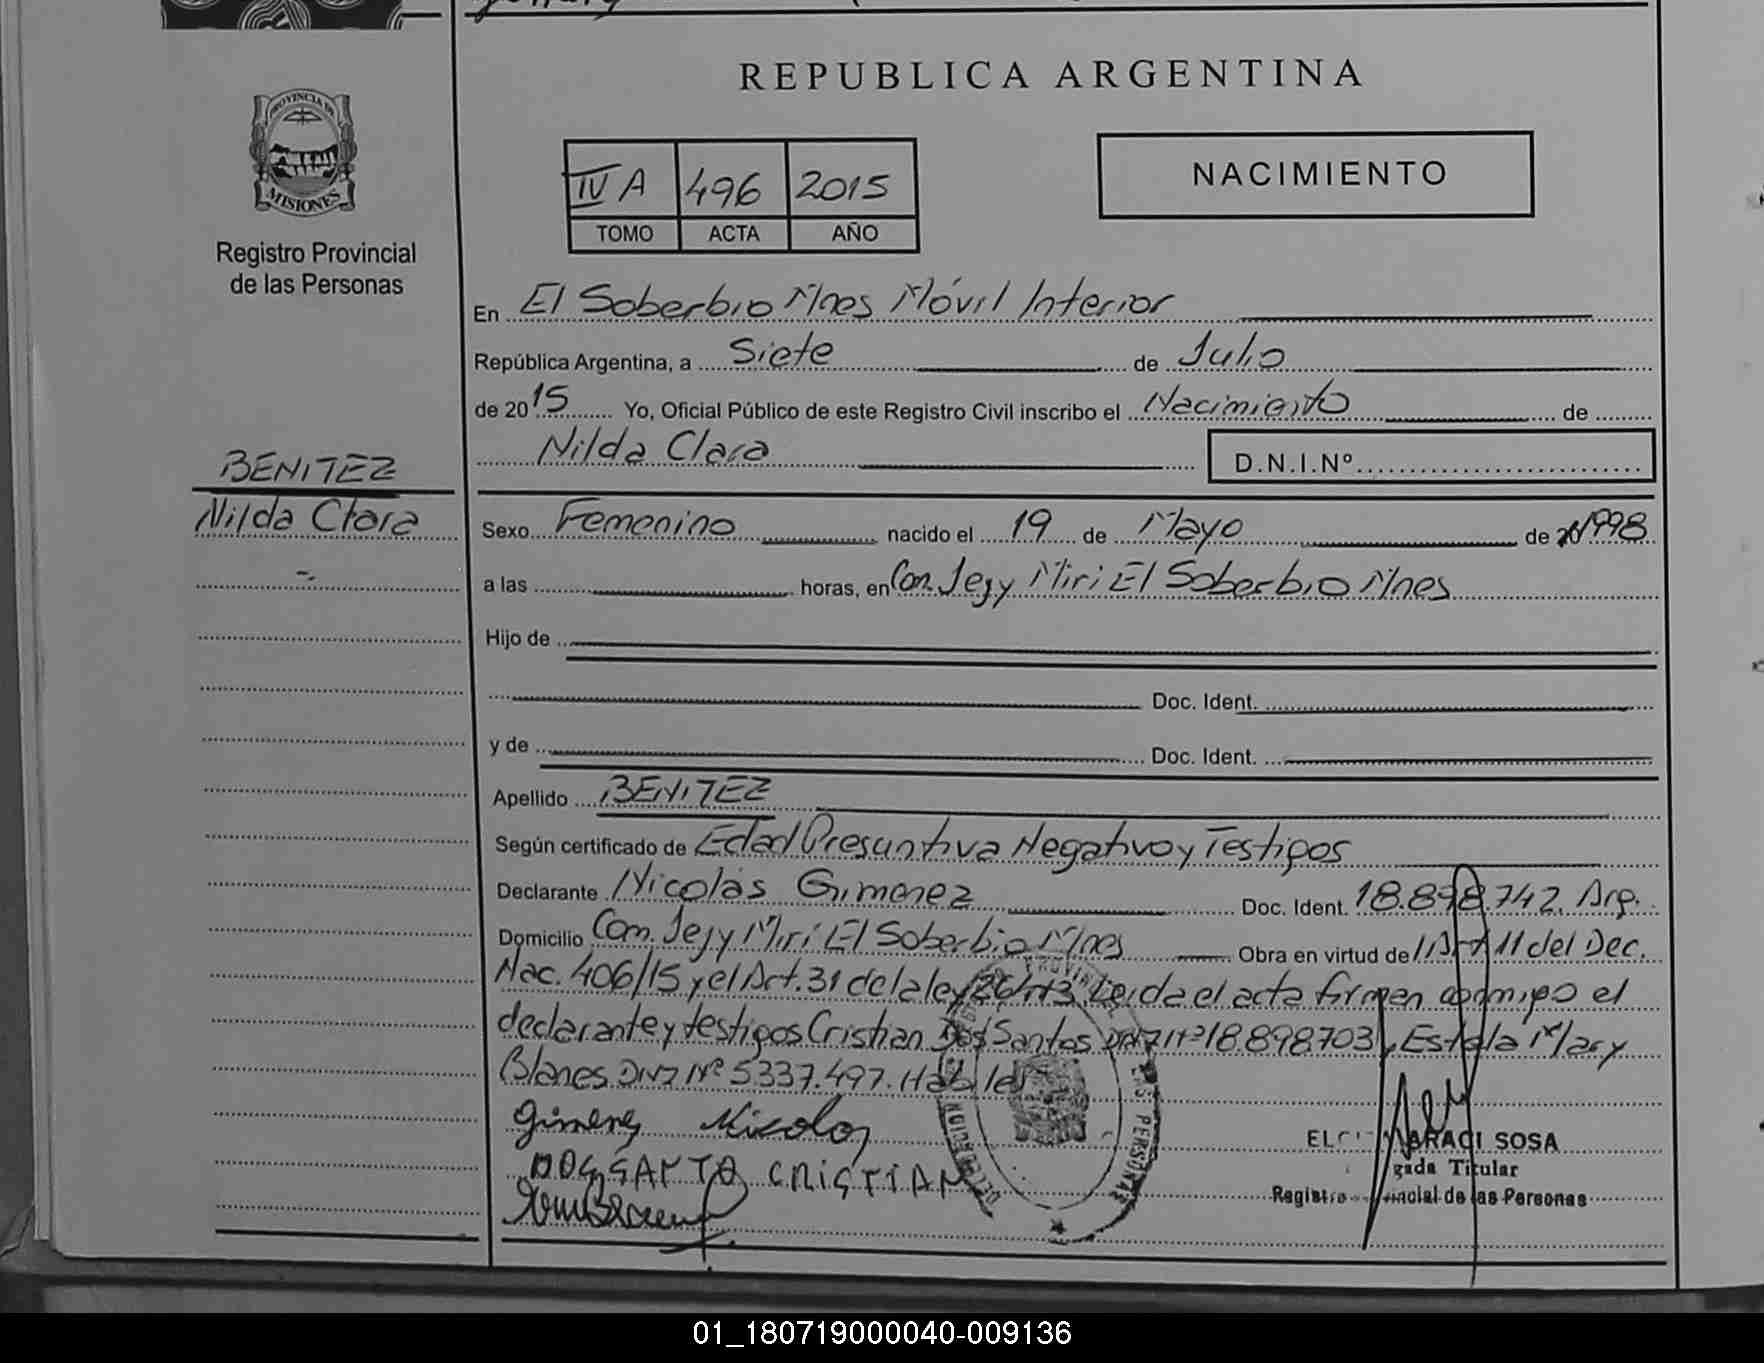 REPUBLICA ARGENTINA
PROVINCIA DE
MISIONES
Registro Provincial
de las Personas
IV A 496 2015
TOMO ACTA AÑO
NACIMIENTO
En El Soberbio Mnes Móvil Interior
República Argentina, a Siete de Julio
de 2015 Yo, Oficial Público de este Registro Civil inscribo el Nacimiento de
Nilda Clara D.N.I.Nº
BENITEZ
Nilda Clara
Sexo Femenino nacido el 19 de Mayo de 1998
a las horas, en Com. Jejy Miri El Soberbio Mnes
Hijo de
Doc. Ident.
y de Doc. Ident.
Apellido BENITEZ
Según certificado de Edad Presuntiva Negativo y Testigos
Declarante Nicolás Gimenez Doc. Ident. 18.898.742. Arg.
Domicilio Com. Jejy Miri El Soberbio Mnes Obra en virtud de // Art 11 del Dec.
Nac. 406/15 y el Art. 31 de la ley 26413 Leida el acta firman conmigo el
declarante y testigos Cristian Dos Santos DNI Nº 18.898.703 y Estela Mary
Blanes DNI Nº 5337.497. Habiles
Gimenez Nicolas
DOSSANTO CRISTIAN
SOSA
Titular
Registro Provincial de las Personas
01_180719000040-009136